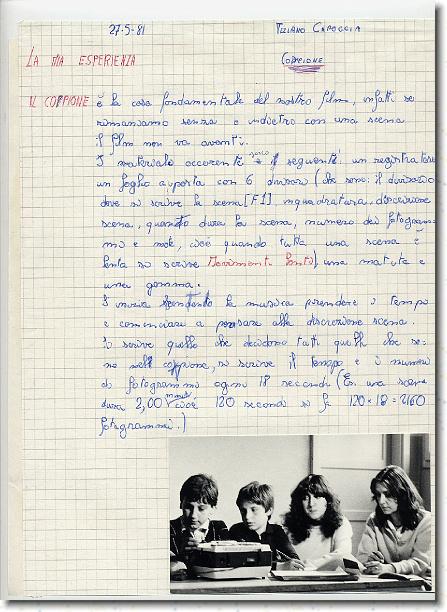 27-5-81 TIZIANO CAPOCCIA
LA MIA ESPERIENZA COPPIONE
IL COPPIONE è la cosa fondamentale del nostro film, infatti se
rimaniamo senza o indietro con una scena
il film non va avanti.
I materiale occorente sono il seguente: un registratore
un foglio apposta con 6 divisori (che sono: il divisorio
dove si scrive la scena [F1], inquadratura, discrizione
scena, quanto dura la scena, numero dei fotogram-
mi e note, cioè quando tutta una scena è
lenta si scrive Movimenti lenti), una matita e
una gomma.
I inizia sentendo la musica prendere i tempo
e cominciare a pensare alla discrezione scena.
Io scrivo quello che decidono tutti quelli che so-
no nell coppione, si scrive il tempo e i numeri
di fotogrammi ogni 18 secondi (Es. una scena
dura 2,00 minuti cioè 120 secondi si fa 120 x 18 = 2160
fotogrammi.)